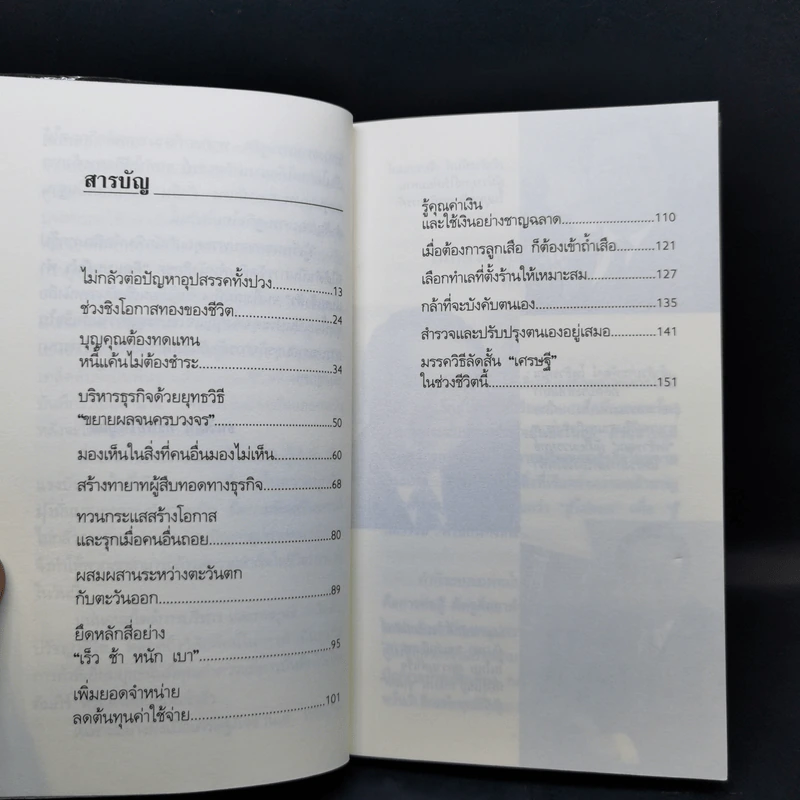 สารบัญ
ไม่กลัวต่อปัญหาอุปสรรคทั้งปวง..............13
ช่วงชิงโอกาสทองของชีวิต....................24
บุญคุณต้องทดแทน
หนี้แค้นไม่ต้องชำระ............................34
บริหารธุรกิจด้วยยุทธวิธี
“ขยายผลจนครบวงจร”........................50
มองเห็นในสิ่งที่คนอื่นมองไม่เห็น..............60
สร้างทายาทผู้สืบทอดทางธุรกิจ..............68
ทวนกระแสสร้างโอกาส
และรุกเมื่อคนอื่นถอย..........................80
ผสมผสานระหว่างตะวันตก
กับตะวันออก....................................89
ยึดหลักสี่อย่าง
“เร็ว ช้า หนัก เบา”...........................95
เพิ่มยอดจำหน่าย
ลดต้นทุนค่าใช้จ่าย............................101
รู้คุณค่าเงิน
และใช้เงินอย่างชาญฉลาด....................110
เมื่อต้องการลูกเสือ ก็ต้องเข้าถ้ำเสือ........121
เลือกทำเลที่ตั้งร้านให้เหมาะสม..............127
กล้าที่จะบังคับตนเอง..........................135
สำรวจและปรับปรุงตนเองอยู่เสมอ..........141
มรรควิธีลัดสั้น “เศรษฐี”
ในช่วงชีวิตนี้....................................151